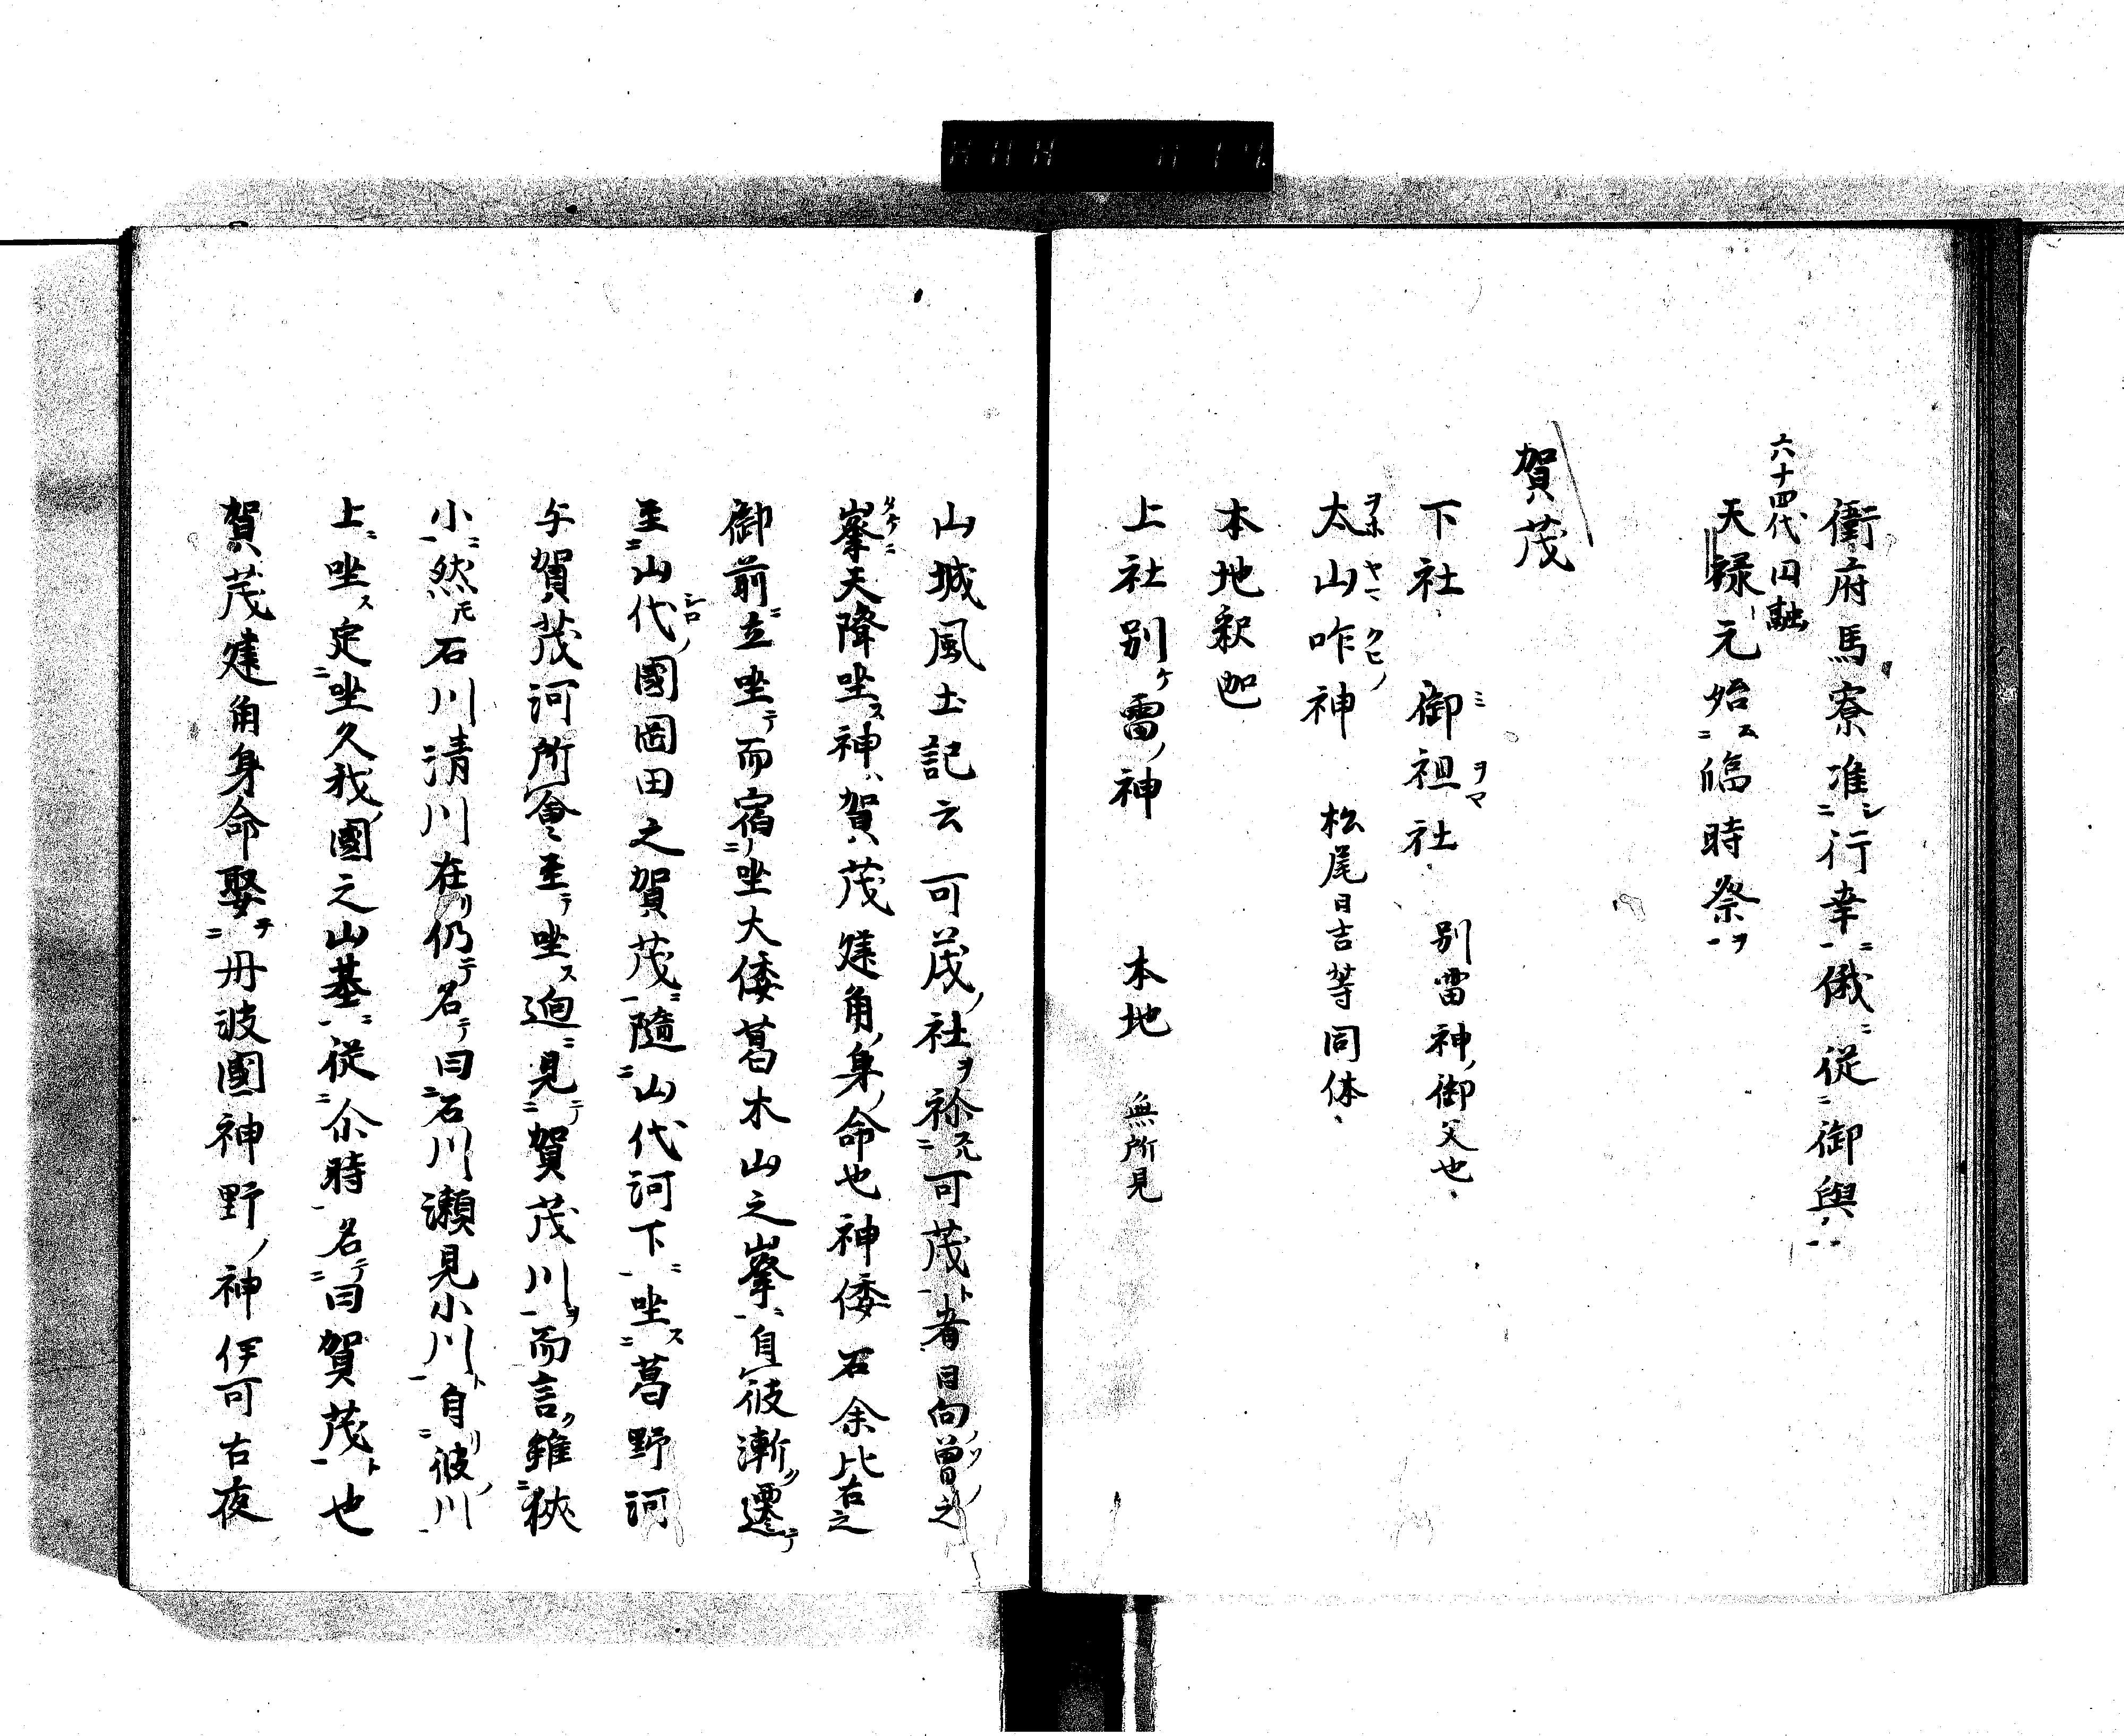 衛府馬寮准行幸儀従御輿
六十四代円融
天禄元始臨時祭
賀茂
下社　御祖社　別雷神御父也
太山咋神　松尾日吉等同体
本地釈迦
上社別雷神　本地　無所見
山城風土記云可茂社称可茂者日向曽之
峯天降坐神賀茂建角身命也神倭石余比古之
御前立坐而宿坐大倭葛木山之峯自彼漸遷
至山代國岡田之賀茂隨山代河下坐葛野河
与賀茂河所會至坐迥見賀茂川而言雖狹
小然石川清川在仍名曰石川瀬見小川自彼川
上坐定坐久我國之山基従尒時名曰賀茂也
賀茂建角身命娶丹波國神野神伊可古夜